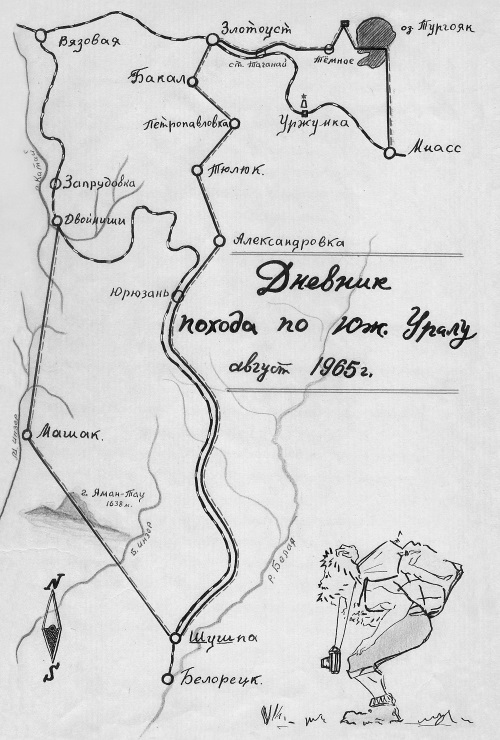 Вязовая
Златоуст
оз. Тургояк
Бакал
ст. Таганай
Тёмное
Петропавловка
Уржумка
Миасс
р. Катав
Запрудовка
Тюлюк.
Двойниши
Александровка
Юрюзань
Дневник
похода по Юж. Уралу
август 1965 г.
М. инзер
Машак.
г. Яман-Тау
1638 м.
Б. инзер
р. Белая
N
S
Шушпа
Белорецк.